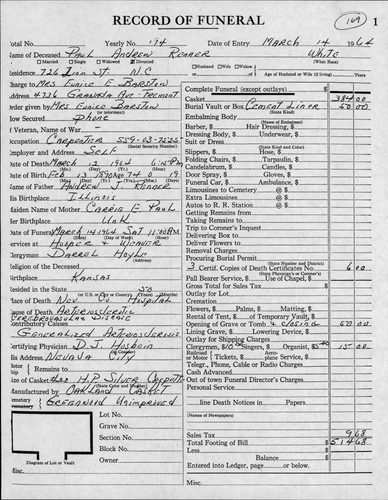 169 1
RECORD OF FUNERAL
Total No. Yearly No. 194 Date of Entry MARCH 14 1964
Name of Deceased PAUL ANDREW RENNER WHITE
Married Single Widowed Divorced (What Race)
Residence 726 ZION ST. N.C. Husband Wife Widow of Age of Husband or Wife (if living) Years
Charge to MRS EUNICE E. BARSTOW
Address 4736 GRANADA
Order given by MRS EUNICE BARSTOW
How Secured PHONE
If Veteran, Name of War -
Occupation CARPENTER 559-03-7525
(Social Security Number)
Employer and Address SELF
Date of Death MARCH 13 1964 6:15 PM
Date of Birth FEB 13 1890 74 0 19
Name of Father ANDREW J RENNER
His Birthplace ILLINOIS
Maiden Name of Mother CARRIE E. PAUL
Her Birthplace UNK
Date of Funeral MARCH 14 1964 SAT 11:00 AM
Services at HOOPER & WEAVER
Clergyman DARROL HOYLE
Religion of the Deceased
Birthplace KANSAS
Resided in the State 50
(or U.S. or City or County)
Place of Death NEV. CO HOSPITAL
Cause of Death ARTERIOSCLEROTIC
CEREBROVASCULAR DISEASE
Contributory Causes
GENERALIZED ARTERIOSCLEROSIS
Certifying Physician D.J.
His Address NEVADA CITY
Motor Remains to
Size of Casket H.P. SILVER
(State Color and Number)
Manufactured by OAKLAND CASKET
Cemetery GREENWOOD UNIMPROVED
Lot No.
Grave No.
Section No.
Block No.
Owner
Diagram of Lot or Vault
Complete Funeral (except outlays) $
Casket 384 00
Burial Vault or Box CEMENT LINER 50 00
(State Kind)
(Name of Embalmer)
Barber, $ Hair Dressing, $
Dressing Body, $ Underwear, $
Suit or Dress
(State Kind and Color)
Slippers, $ Hose, $
Folding Chairs, $ Tarpaulin, $
Candelabrum, $ Candles, $
Door Spray, $ Gloves, $
Funeral Car, $ Ambulance, $
Limousines to Cemetery @ $
Extra Limousines @ $
Autos to R. R. Station @ $
Getting Remains from
Taking Remains to
Trip to Coroner's Inquest
Delivering Box to
Deliver Flowers to
Removal Charges
Procuring Burial Permit
(State Number and District)
3 Certif. Copies of Death Certificates No. 6 00
(State Physician's or Coroner's)
Pall Bearer Service, $ Use of Chapel, $
Gross Total for Sales Tax $
Outlay for Lot
Cremation
Flowers, $ Palms, $ Matting, $
Rental of Tent, $ of Temporary Vault, $
Opening of Grave or Tomb & CLOSING 50 00
Lining Grave, $ Lowering Device, $
Outlay for Shipping Charges
Clergymen, $10.00 Singers, $ Organist, $5.00 15 00
Railroad or Motor Tickets, $ Aeroplane Service, $
Telegr., Phone, Cable or Radio Charges
Cash Advanced
Out of town Funeral Director's Charges
Personal Service
line Death Notices in Papers
(Names of Newspapers)
Sales Tax 9 68
Total Footing of Bill $ 514 68
Less $
Less $
Balance $
Entered into Ledger, page or below.
Misc. Misc.